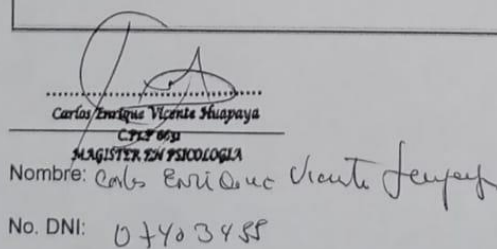 Carlos Enrique Vicente Huapaya
C.Ps.P
MAGISTER EN PSICOLOGIA
Nombre: Carlos Enrique Vicente
No. DNI: